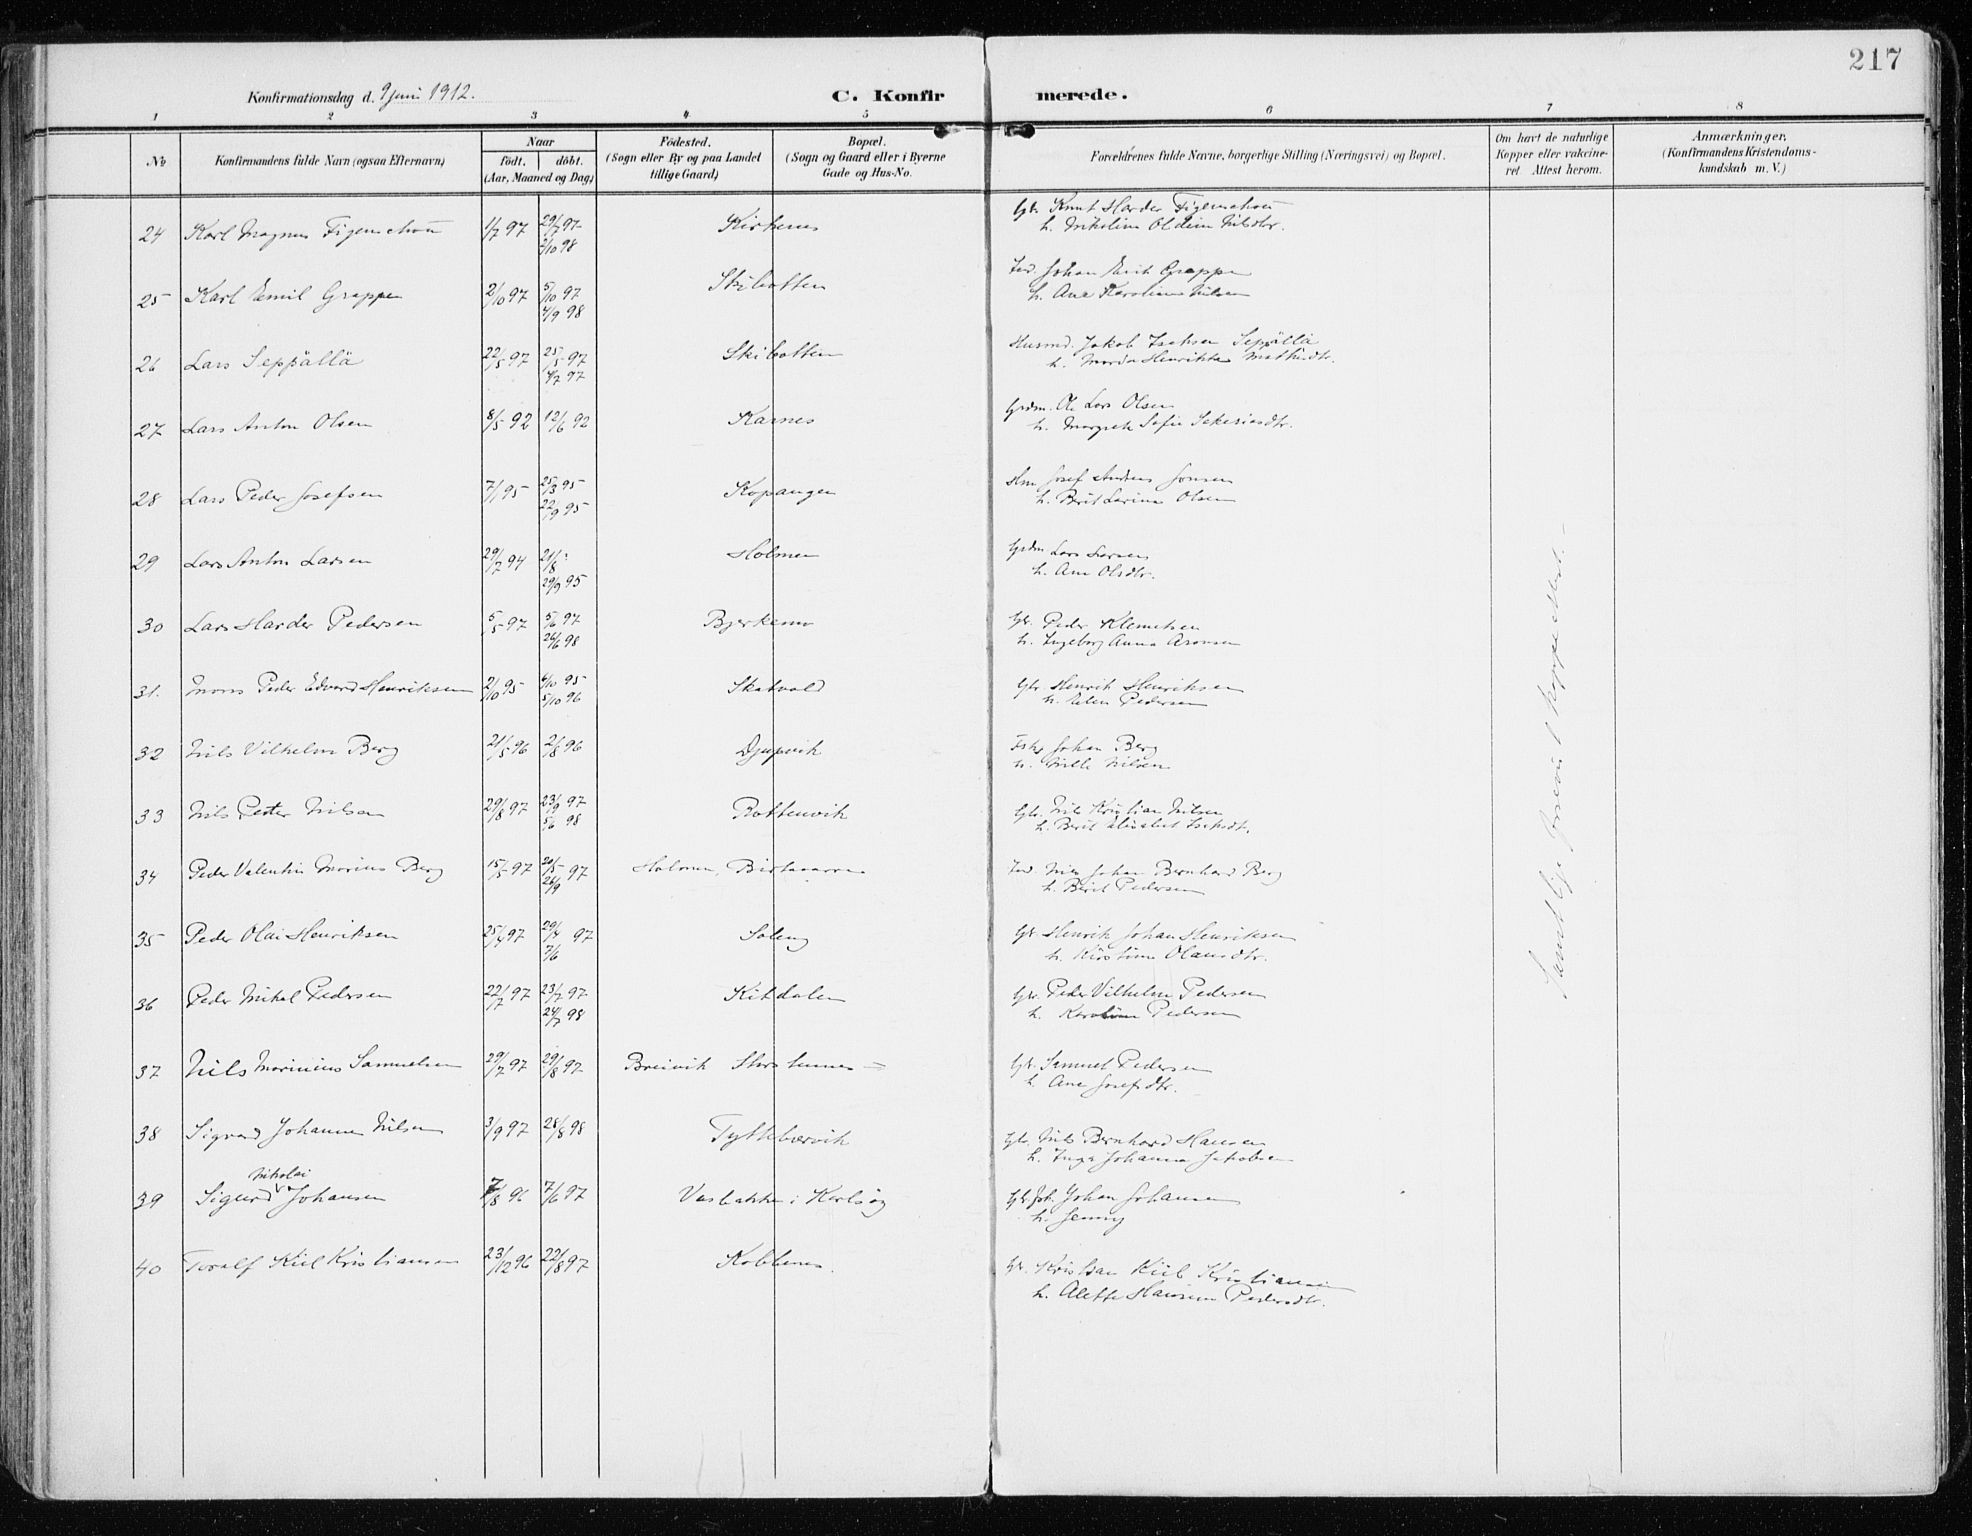 217
Konfirmationsdag d. 9 juni 1912. C. Konfirmerede.
1 2 3 4 5 6 7 8
No Konfirmandens fulde Navn (ogsaa Efternavn) Naar født, døbt. (Aar, Maaned og Dag) Födested. (Sogn eller By og paa Landet tillige Gaard) Bopæl. (Sogn og Gaard eller i Byerne Gade og Hus-No. Forældrenes fulde Navne, borgerlige Stilling (Næringsvei) og Bopæl. Om havt de naturlige Kopper eller vakcineret. Attest herom. Anmærkninger. (Konfirmandens Kristendomskundskab m. V.)
24 Karl Magnus Figenschou 1/7 97 29/7 97 Kirkenes Gbr. Knut Harder Figenschou
2/10 98 h. Nikoline Nilsdtr.
25 Karl Emil Grappe 2/10 97 5/10 97 Skibotten Johan Erik Grappe
4/9 98 h. Ane Karoline Nilsen
26 Lars Seppällä 22/5 97 25/5 97 Skibotten Husmd. Jakob Isaksen Seppällä
4/7 97 h. Henrikke
27 Lars Anton Olsen 8/5 92 12/6 92 Karnes Grdm. Ole Lars Olsen
h. Margrete Sofie
28 Lars Peder Josefsen 7/1 95 25/3 95 Kopangen Josef Andreas Jonsen
22/9 95 h. Berit Larine Olsen
29 Lars Anton Larsen 29/7 94 21/8 Holmen Grdm Lars Larsen
29/9 95 h. Ane Olsdtr.
30 Lars Harder Pedersen 5/5 97 5/6 97 Bjerkemo Gbr. Peder Klemetsen
26/6 98 h. Ingeborg Anna Aronsen
31. Mons Peder Edvard Henriksen 2/10 95 6/10 95 Skatvold Gbr Henrik Henriksen
5/10 96 h. Elen Pedersen
32 Nils Vilhelm Berg 21/5 96 2/8 96 Djupvik Johan Berg
h. Nilsen
33 Nils Peder Nilsen 29/8 97 23/9 97 Rottenvik Gbr. Nils Kristian Nilsen
5/6 98 h. Berit Elisabet
34 Peder Valentin Marius Berg 15/5 97 20/5 97 Holmen, Birtavarre Nils Johan Bernhard Berg
26/9 h. Berit Pedersen
35 Peder Olai Henriksen 25/4 97 29/4 97 Soleng Gbr. Henrik Johan Henriksen
7/6 h. Kirstine Olausdtr.
36 Peder Mikal Pedersen 22/7 97 23/7 97 Kitdalen Gbr. Peder Vilhelm Pedersen
24/7 98 h. Karoline Pedersen
37 Nils Marinius Samuelsen 29/7 97 29/8 97 Breivik Storstennes Gbr. Samuel Pedersen
h. Ane Josefsdtr.
38 Sigvard Johannes Nilsen 3/9 97 28/8 98 Tyttebærvik Gbr. Nils Bernhard Hansen
h. Inga Johanna Jakobsen
Nikolai
39 Sigurd Johansen 7/8 96 7/6 97 Vasbakken i Karlsøy Johan Johansen
h. Jenny
40 Toralf Kiil Kristiansen 23/12 96 22/8 97 Koblenes. Gbr. Kristian Kiil Kristiansen
h. Alette Hansine Pedersdtr.